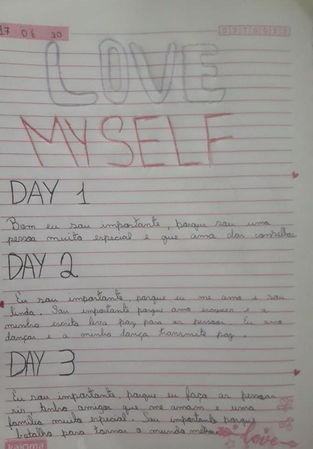 17 06 20
D S T Q Q S S
LOVE
MYSELF
DAY 1
Bom eu sou importante, porque sou uma
pessoa muito especial e que ama dar conselho
DAY 2
Eu sou importante, porque eu me amo e sou
linda. Sou importante porque amo escrever e a
minha escrita leva paz para as pessoas. Eu amo
dançar e a minha dança transmite paz.
DAY 3
Eu sou importante, porque eu faço as pessoas
rir, tenho amigos que me amam e uma
família muito especial. Sou importante porque
batalho para tornar o mundo melhor
love